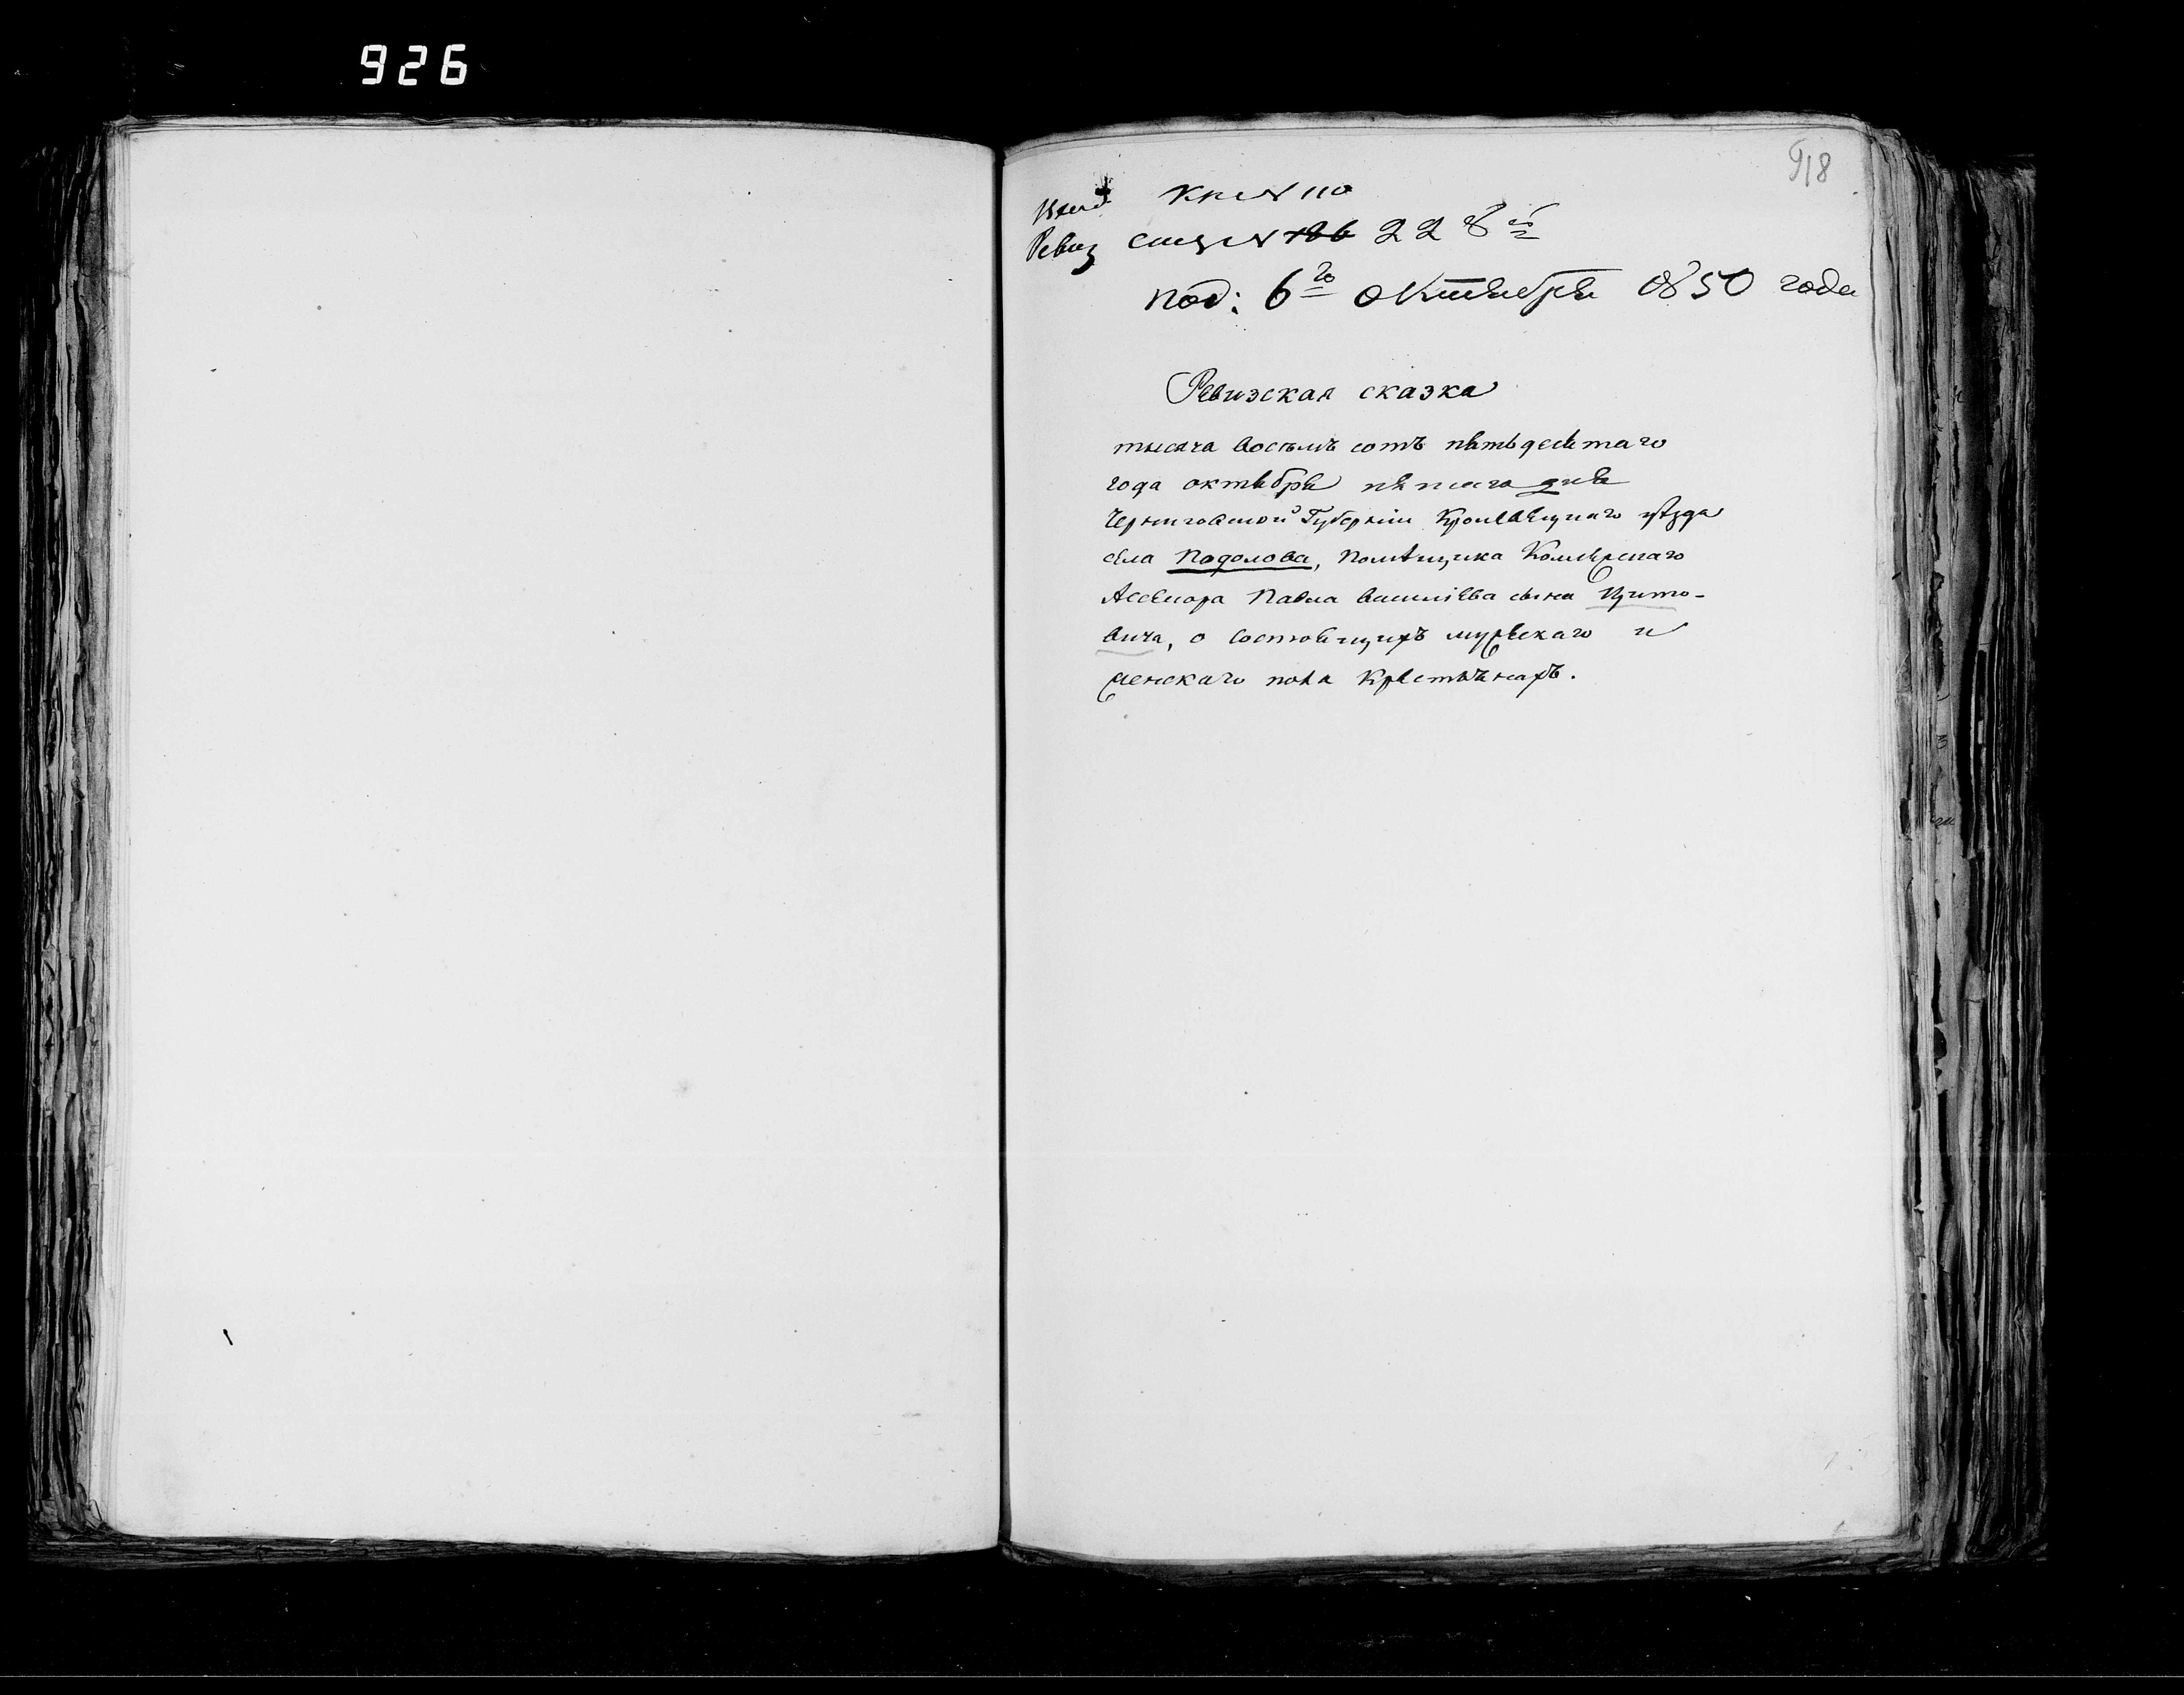 926
918
Кн № 110
Ревиз № 186 228
под: 6го Октября 1850 года
Ревизская сказка
тысяча восемъ сотъ пятьдесятаго
года октября пятаго дня
Черниговской Губерніи Кролевецкаго уѣзда
села Подолова, Помѣщика Коллежскаго
Ассесора Павла Василіева сына Цыто-
вича, о состоящихъ мужескаго и
женскаго пола Крестьянахъ.